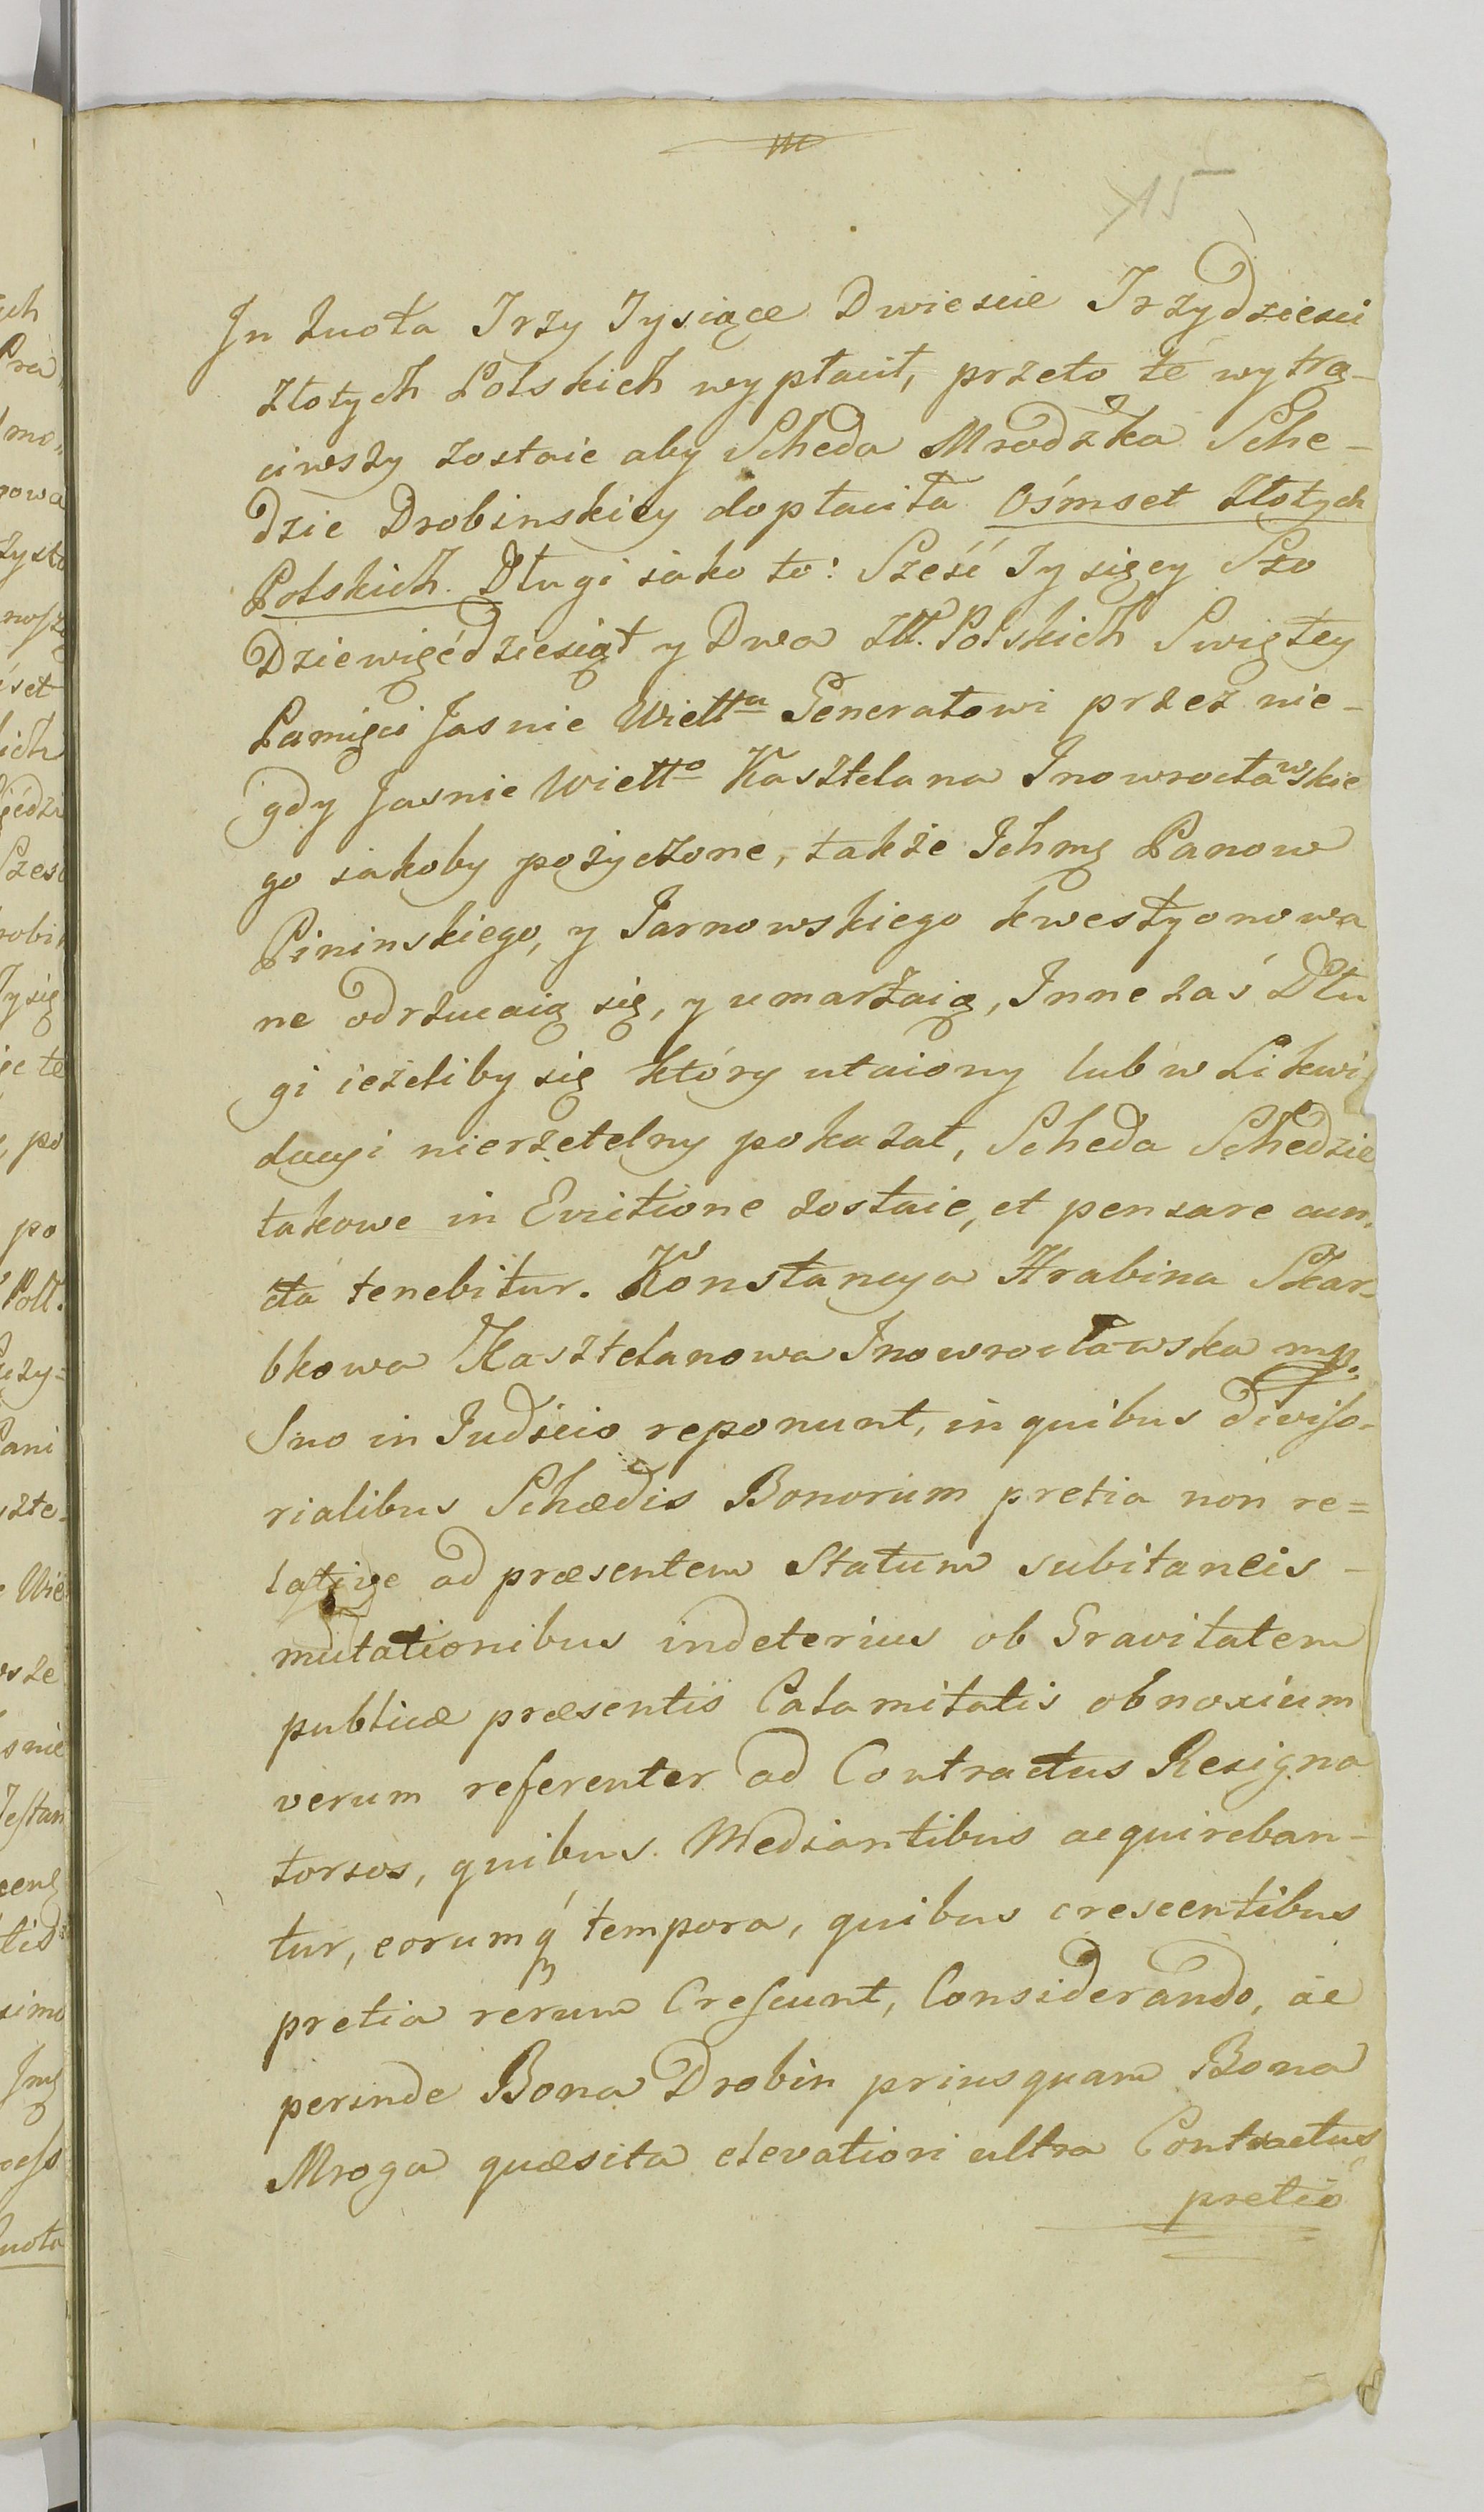 15
In Quota Trzy Tysiące Dwiescie Trzydziesci
złotych Polskich wypłacił, przeto te wytrą-
ciwszy zostaie aby Scheda Mrodzka Sche-
dzie Drobinskiey dopłaciła Ośmset Złotych
Polskich. Długi iako to: Sześć Tysięcy Sto
Dziewięćdziesiąt y Dwa Złł. Polskich Swiętey
Pamięci Jasnie Wiellu Generałowi przez nie-
gdy Jasnie Wiello Kasztelana Inowrocławskie
go iakoby pożyczone, także Ichmę Panow
Pininskiego, y Tarnowskiego kwestyonowa
ne odrzucaią się, y umarzaią, Inne zaś Dłu
gi ieżeliby się który utaiony lub w Likwi
dacyi nierzetelny pokazał, Scheda Schedzie
takowe in Evictione zostaie, et pensare cun-
cta tenebitur. Konstancya Hrabina Skar-
bkowa Kasztelanowa Inowrocławska mp.
Sno in Judicio reponunt, in quibus diviso-
rialibus Schædis Bonorum pretia non re=
lative ad præsentem Statum subitaneis -
mutationibus indeterius ob Gravitatem
publicæ præsentis Calamitatis obnoxium
verum referenter ad Contractus Resigna
torios, quibus Mediantibus acquireban-
tur, eorumq́ tempora, quibus crescentibus
pretia rerum Crescunt, Considerando, ac
perinde Bona Drobin priusquam Bona
Mroga quæsita elevatiori ultra Contractus
pretio